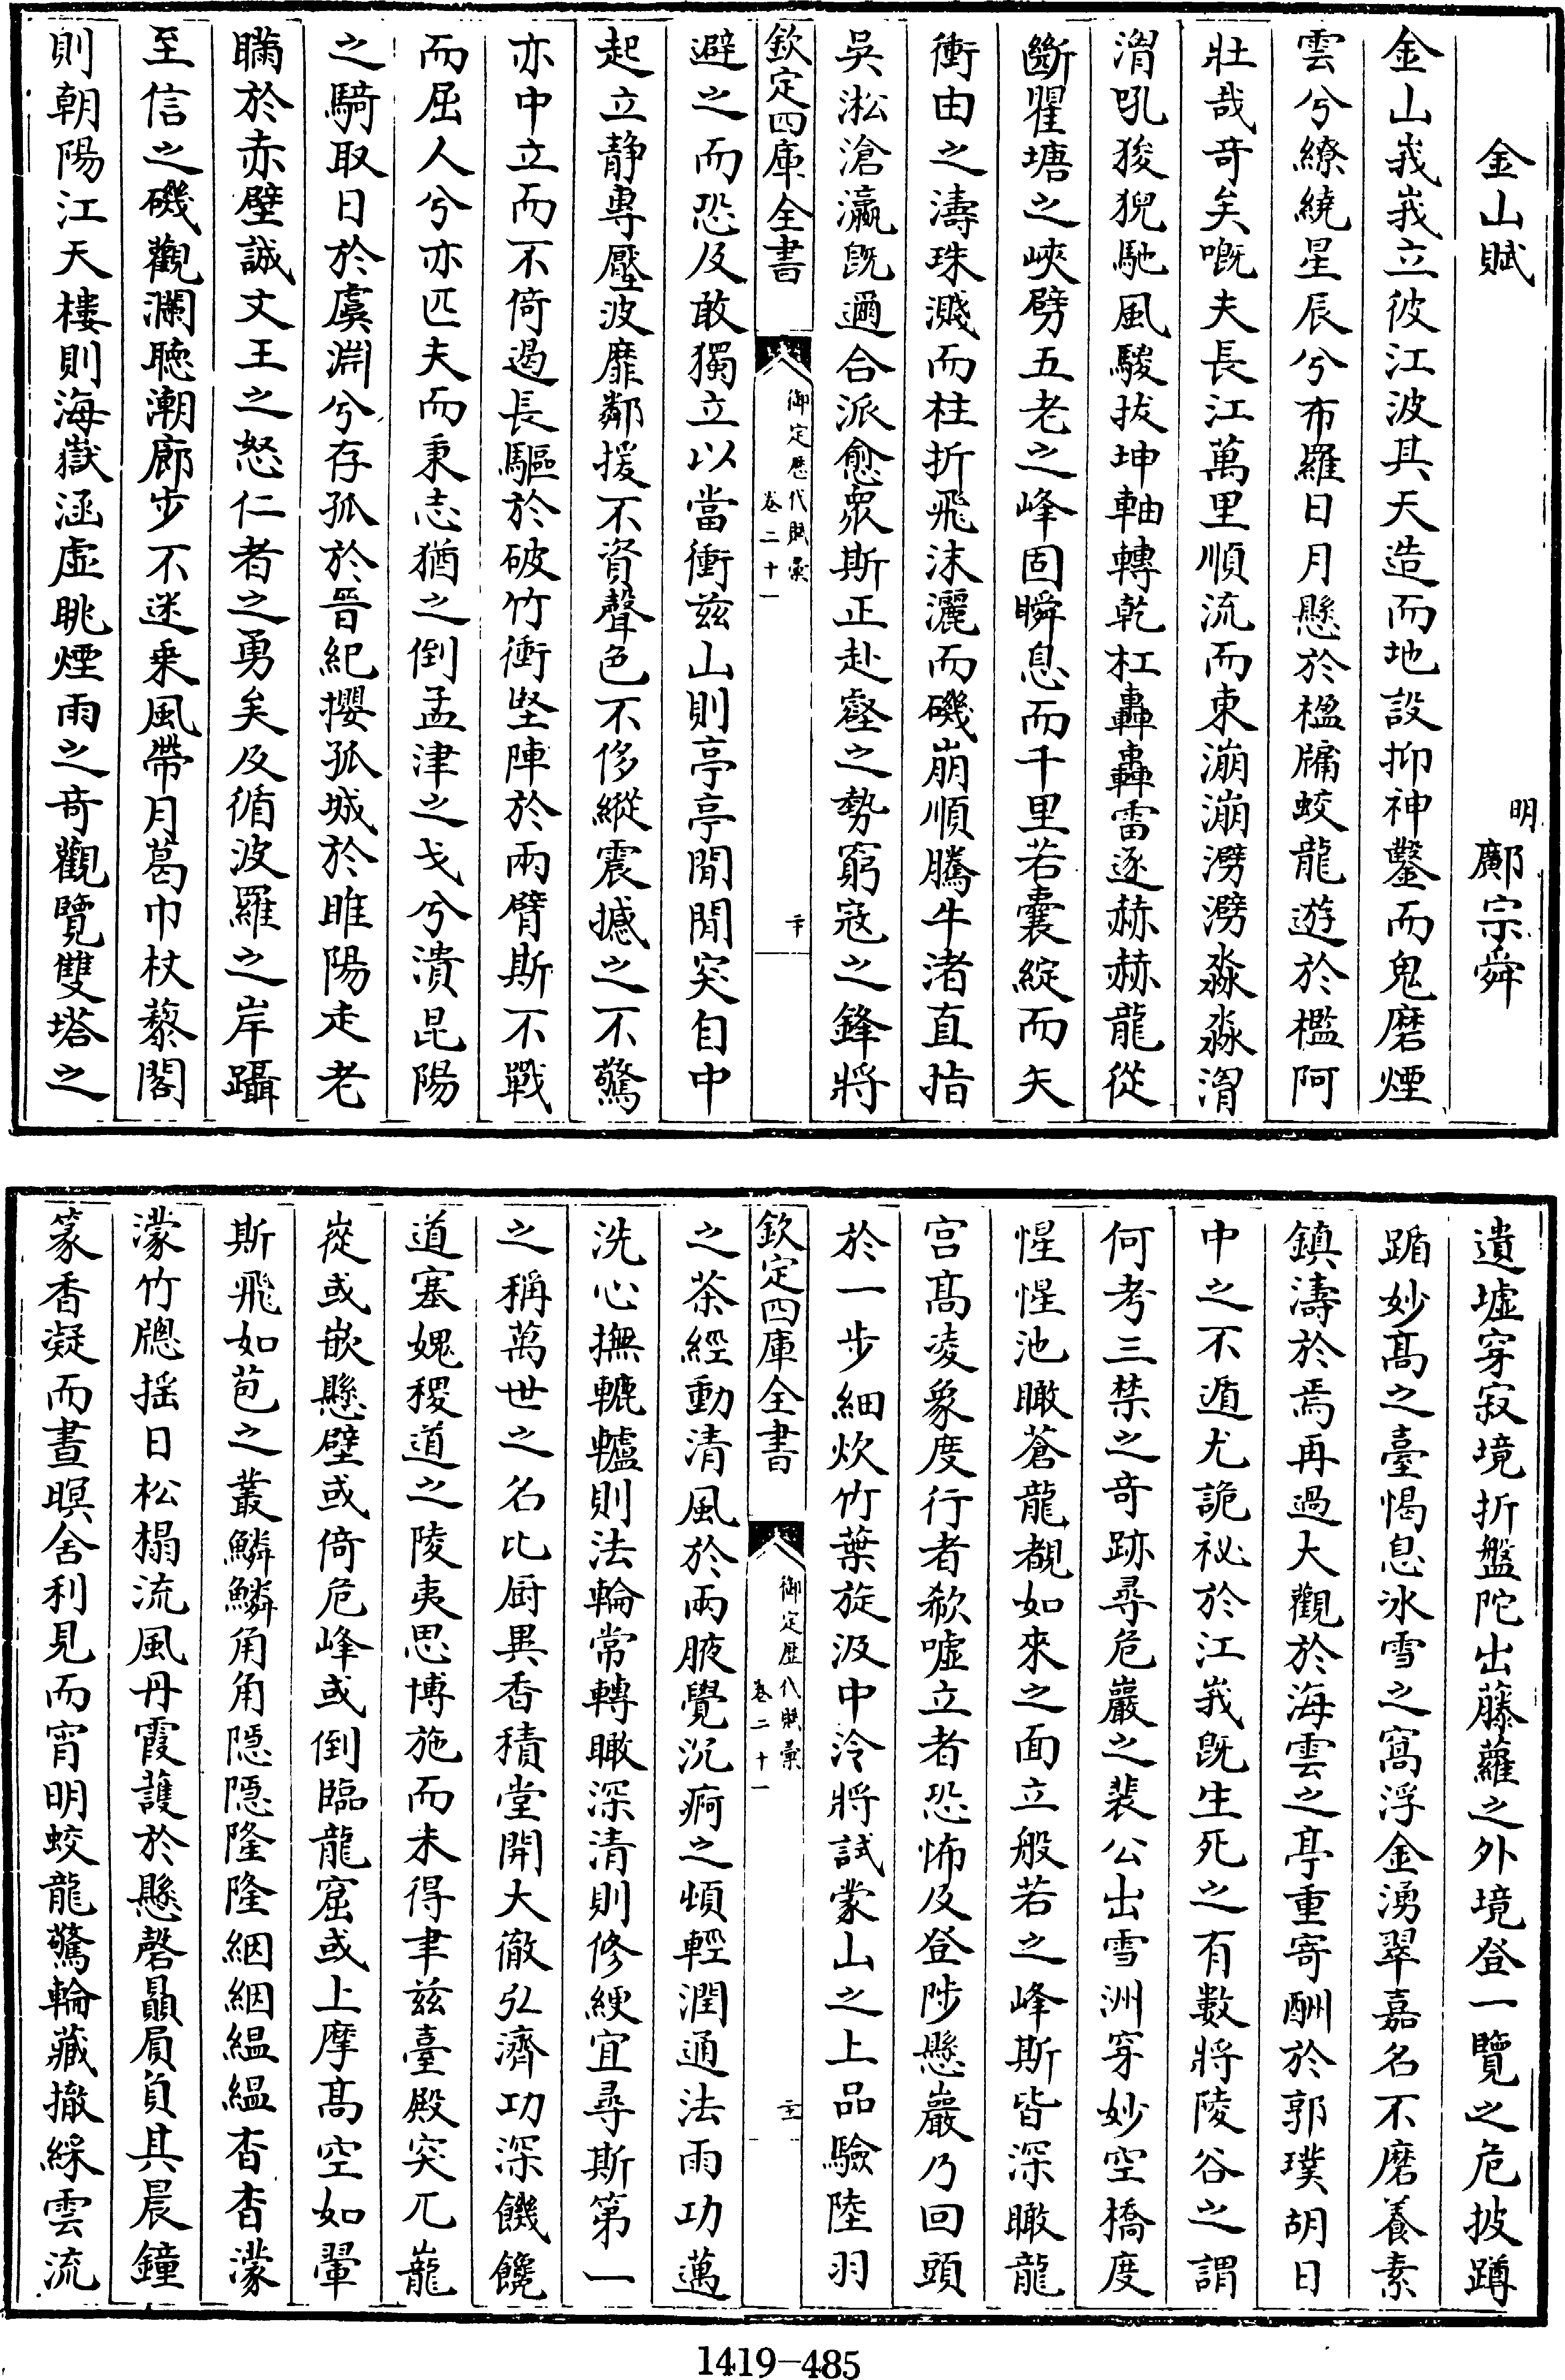 金山賦
明鄺宗舜
金山峩峩立彼江波其天造而地設抑神鑿而鬼磨煙
雲兮繚繞星辰兮布羅日月懸於楹牖蛟龍遊於檻阿
壯哉奇矣嘅夫長江萬里順流而東漰漰澇澇淼淼㵋
㵋吼狻猊馳風駿拔坤軸轉乾杠轟轟雷逐赫赫龍從
斷瞿塘之峽劈五老之峰固瞬息而千里若囊綻而矢
衝由之濤珠濺而柱折飛沫灑而磯崩順騰牛渚直指
吳淞滄瀛旣邇合派愈衆斯正赴壑之勢窮宼之鋒將
欽定四庫全書
御定歷代賦彙
卷二十一
避之而恐及敢獨立以當衝兹山則亭亭閒閒突自中
起立静專壓波靡鄰援不資聲色不侈縱震撼之不驚
亦中立而不倚遏長驅於破竹衝坚陣於兩臂斯不戰
而屈人兮亦匹夫而秉志猶之倒孟津之戈兮潰昆陽
之騎取日於虞淵兮存孤於晉紀攖孤城於睢陽走老
瞞於赤壁誠文王之怒仁者之勇矣及循波羅之岸躡
至信之磯觀瀾聽潮廊步不迷乗風帶月葛巾杖藜閣
則朝陽江天樓則海嶽涵虚眺煙雨之奇觀覽雙塔之
遺墟穿寂境折盤陀出藤蘿之外境登一覽之危披蹲
踲妙髙之臺愒息冰雪之窩浮金湧翠嘉名不磨養素
鎮濤於焉再過大觀於海雲之亭重寄酬於郭璞胡日
中之不遁尤詭祕於江峩旣生死之有數將陵谷之謂
何考三禁之奇跡尋危巖之裴公出雪洲穿妙空橋度
惺惺池瞰蒼龍覩如來之面立般若之峰斯皆深瞰龍
宫髙凌象度行者欷嘘立者恐怖及登陟懸巖乃回頭
於一步細炊竹葉旋汲中泠將試蒙山之上品驗陸羽
欽定四庫全書
御定歷代賦彙
卷二十一
之茶經動清風於兩腋覺沉痾之頓輕潤通法雨功邁
洗心撫轆轤則法輪常轉瞰深清則修綆宜尋斯第一
之稱萬世之名比厨異香積堂開大徹弘濟功深饑饞
道塞媿稷道之陵夷思博施而未得聿兹臺殿突兀巃
嵸或嵌懸壁或倚危峰或倒臨龍窟或上摩髙空如翬
斯飛如苞之叢鱗鱗角角隱隱隆隆絪絪緼緼杳杳濛
濛竹牕揺日松榻流風丹霞護於懸磬贔屓負其晨鐘
篆香凝而晝暝舍利見而宵明蛟龍驚輪藏撤綵雲流
1419-485